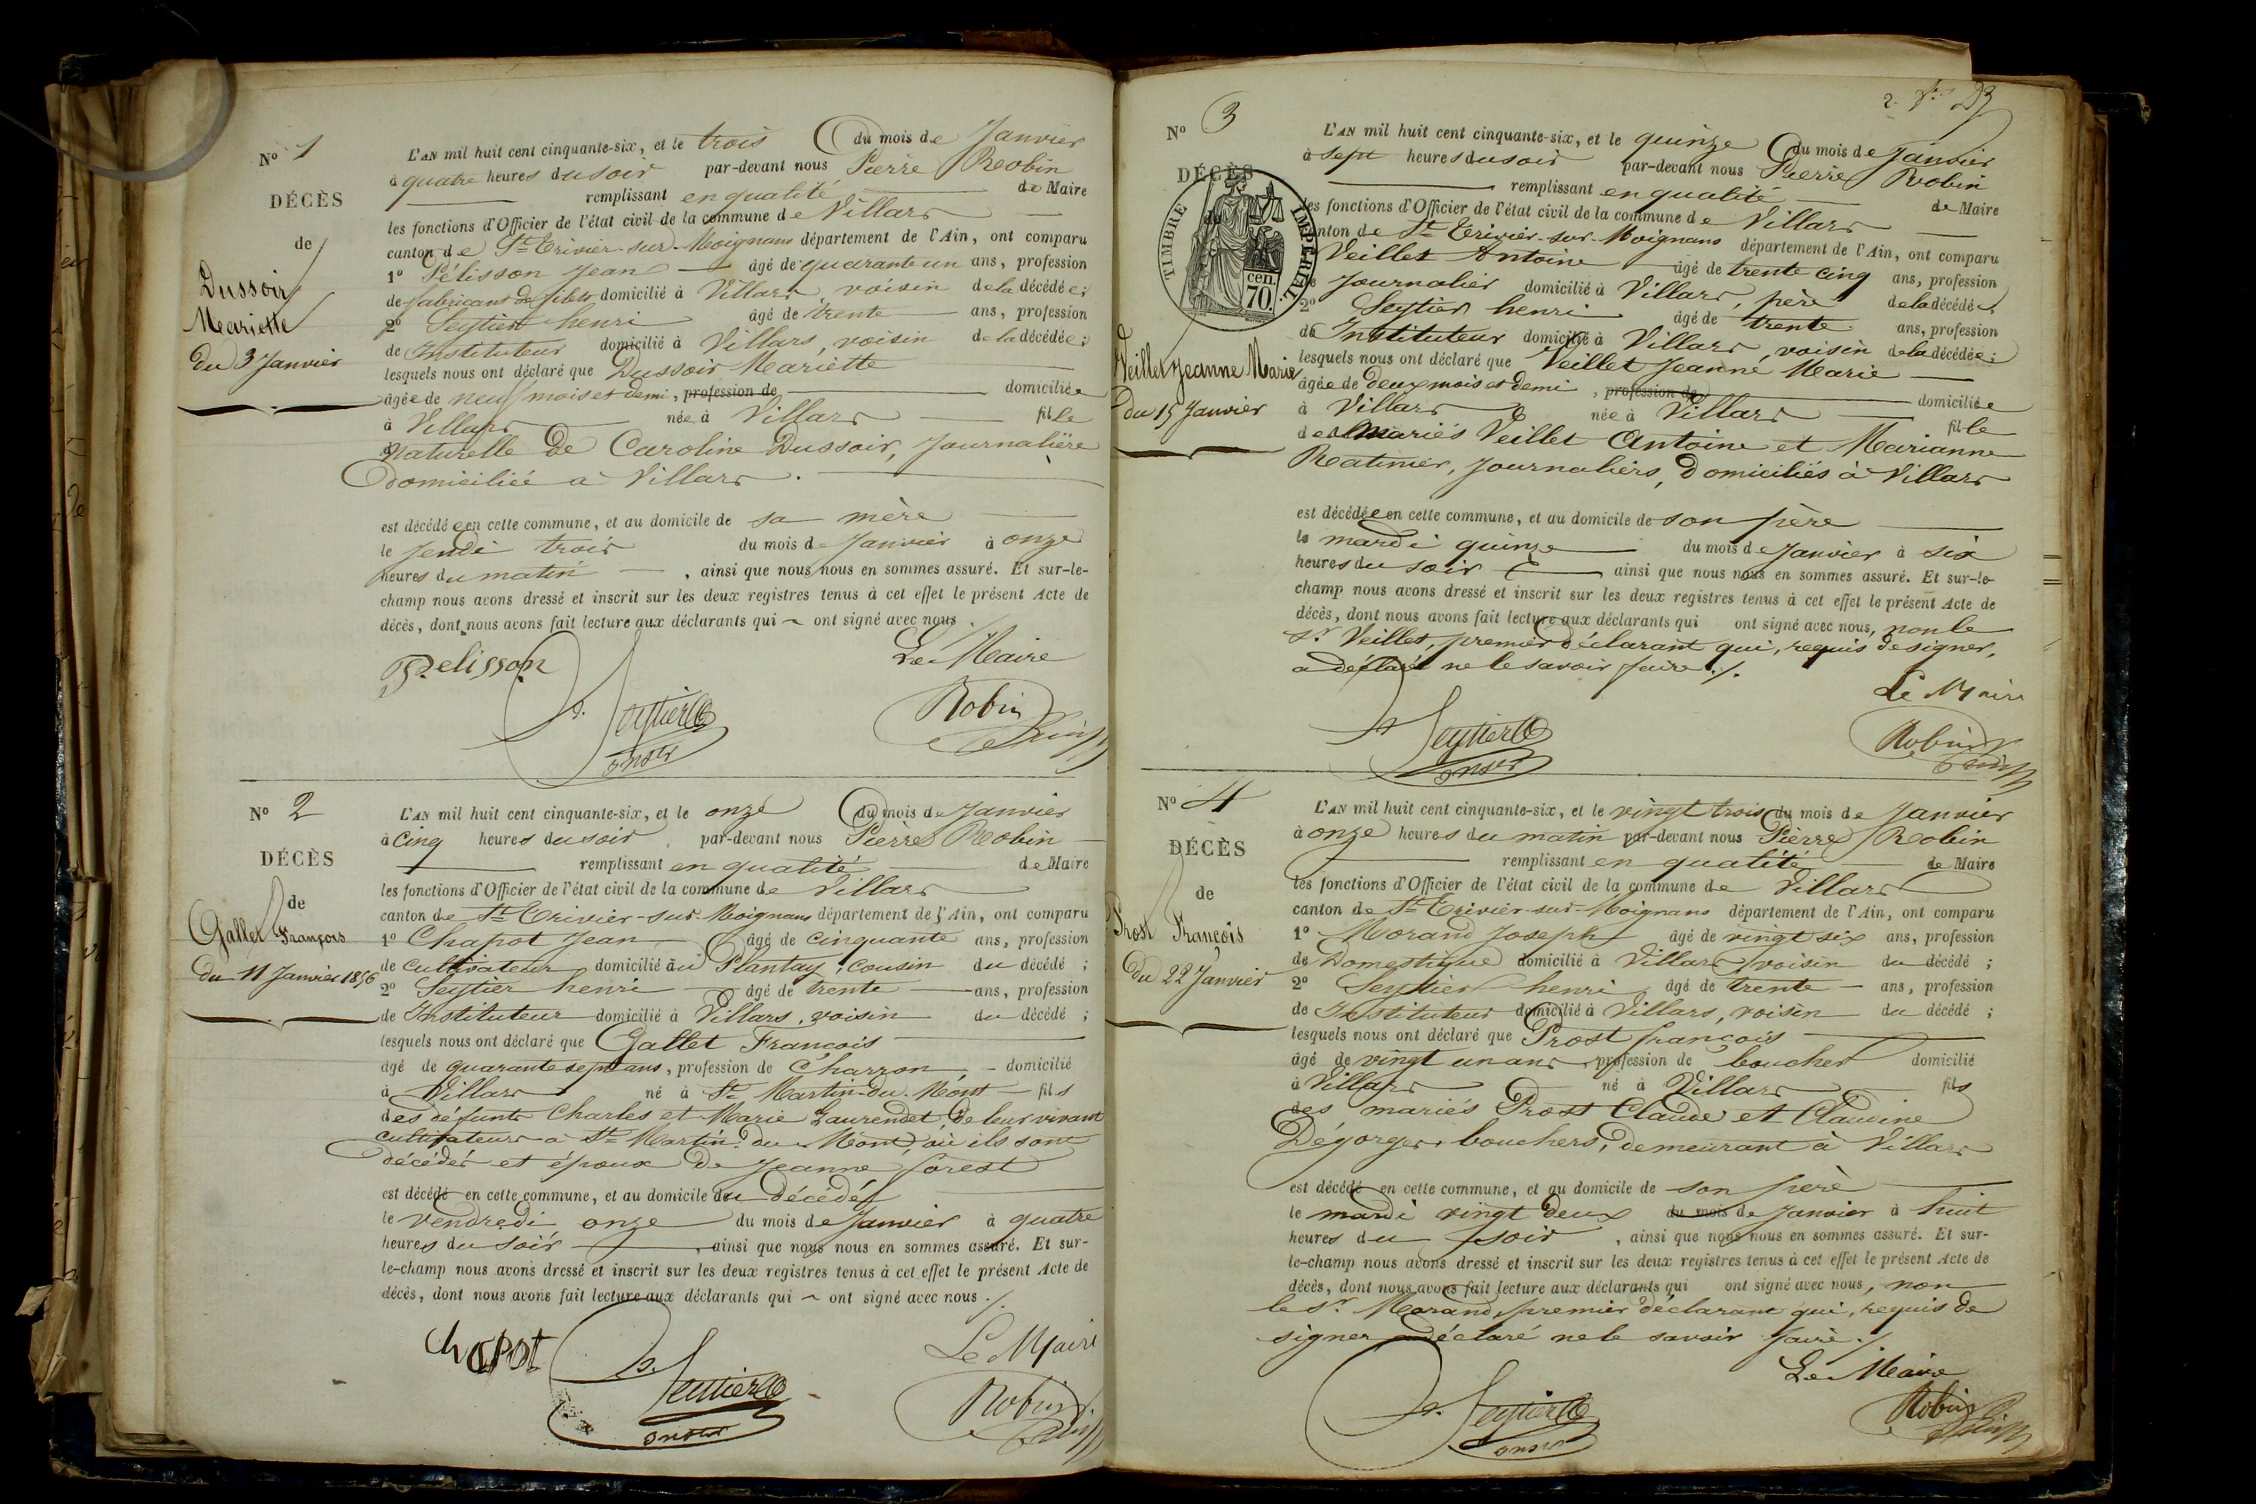 N° 1
DÉCÈS
de
Dussoir
Mariette
du 3 Janvier
L'AN mil huit cent cinquante-six, et le trois du mois de Janvier
à quatre heures du soir par-devant nous Pierre Robin
remplissant en qualité de Maire
les fonctions d'Officier de l'état civil de la commune de Villars
canton de St Trivier-sur-Moignans département de l'Ain, ont comparu
1° Pélisson Jean âgé de quarante un ans, profession
de fabricant de domicilié à Villars, voisin de la décédée;
2° Seytier henri âgé de trente ans, profession
de Instituteur domicilié à Villars, voisin de la décédée;
lesquels nous ont déclaré que Dussoir Mariette
âgée de neuf mois et demi, profession de domiciliée
à Villars née à Villars fille
Naturelle de Caroline Dussoir, Journalière
domiciliée à Villars.
est décédée en cette commune, et au domicile de sa mère
le Jeudi trois du mois de Janvier à onze
heures du matin, ainsi que nous nous en sommes assuré. Et sur-le-
champ nous avons dressé et inscrit sur les deux registres tenus à cet effet le présent Acte de
décès, dont nous avons fait lecture aux déclarants qui ont signé avec nous.
Pelisson
Seytier
Le Maire
Robin
N° 2
DÉCÈS
de
Gallet François
du 11 Janvier 1856
L'AN mil huit cent cinquante-six, et le onze du mois de Janvier
à cinq heures du soir par-devant nous Pierre Robin
remplissant en qualité de Maire
les fonctions d'Officier de l'état civil de la commune de Villars
canton de St Trivier-sur-Moignans département de l'Ain, ont comparu
1° Chapot Jean âgé de cinquante ans, profession
de cultivateur domicilié au Plantay, cousin du décédé;
2° Seytier henri âgé de trente ans, profession
de Instituteur domicilié à Villars, voisin du décédé;
lesquels nous ont déclaré que Gallet François
âgé de quarante sept ans, profession de Charron, domicilié
à Villars né à St Martin-du-Mont fils
des défunts Charles et Marie Laurendet, de leur vivant
cultivateurs à St Martin du Mont, où ils sont
décédés et époux de Jeanne forest
est décédé en cette commune, et au domicile du décédé
le vendredi onze du mois de Janvier à quatre
heures du soir, ainsi que nous nous en sommes assuré. Et sur-
le-champ nous avons dressé et inscrit sur les deux registres tenus à cet effet le présent Acte de
décès, dont nous avons fait lecture aux déclarants qui ont signé avec nous.
Chapot
Seytier
Le Maire
Robin
2.
N° 3
DÉCÈS
TIMBRE IMPÉRIAL
70 cen.
Veillet Jeanne Marie
du 15 Janvier
L'AN mil huit cent cinquante-six, et le quinze du mois de Janvier
à sept heures du soir par-devant nous Pierre Robin
remplissant en qualité de Maire
les fonctions d'Officier de l'état civil de la commune de Villars
canton de St Trivier-sur-Moignans département de l'Ain, ont comparu
Veillet Antoine âgé de trente cinq ans, profession
Journalier domicilié à Villars, père de la décédée
2° Seytier henri âgé de trente ans, profession
de Instituteur domicilié à Villars, voisin de la décédée;
lesquels nous ont déclaré que Veillet Jeanne Marie
âgée de deux mois et demi, profession de domiciliée
à Villars née à Villars fille
des mariés Veillet Antoine et Marianne
Ratinier, Journaliers, domiciliés à Villars
est décédée en cette commune, et au domicile de son père
le mardi quinze du mois de Janvier à six
heures du soir ainsi que nous nous en sommes assuré. Et sur-le-
champ nous avons dressé et inscrit sur les deux registres tenus à cet effet le présent Acte de
décès, dont nous avons fait lecture aux déclarants qui ont signé avec nous, non le
sr Veillet, premier déclarant qui, requis de signer,
a déclaré ne le savoir faire.
Le Maire
Seytier
Robin
N° 4
DÉCÈS
de
Prost François
du 22 Janvier
L'AN mil huit cent cinquante-six, et le vingt trois du mois de Janvier
à onze heures du matin par-devant nous Pierre Robin
remplissant en qualité de Maire
les fonctions d'Officier de l'état civil de la commune de Villars
canton de St Trivier-sur-Moignans département de l'Ain, ont comparu
1° Morand Joseph âgé de vingt six ans, profession
de Domestique domicilié à Villars, voisin du décédé;
2° Seytier henri âgé de trente ans, profession
de Instituteur domicilié à Villars, voisin du décédé;
lesquels nous ont déclaré que Prost françois
âgé de vingt un ans, profession de boucher domicilié
à Villars né à Villars fils
des mariés Prost Claude et Claudine
Dégorges bouchers, demeurant à Villars
est décédé en cette commune, et au domicile de son père
le mardi vingt deux du mois de Janvier à huit
heures du soir, ainsi que nous nous en sommes assuré. Et sur-
le-champ nous avons dressé et inscrit sur les deux registres tenus à cet effet le présent Acte de
décès, dont nous avons fait lecture aux déclarants qui ont signé avec nous, non
le sr Morand premier déclarant qui, requis de
signer a déclaré ne le savoir faire.
Le Maire
Seytier
Robin